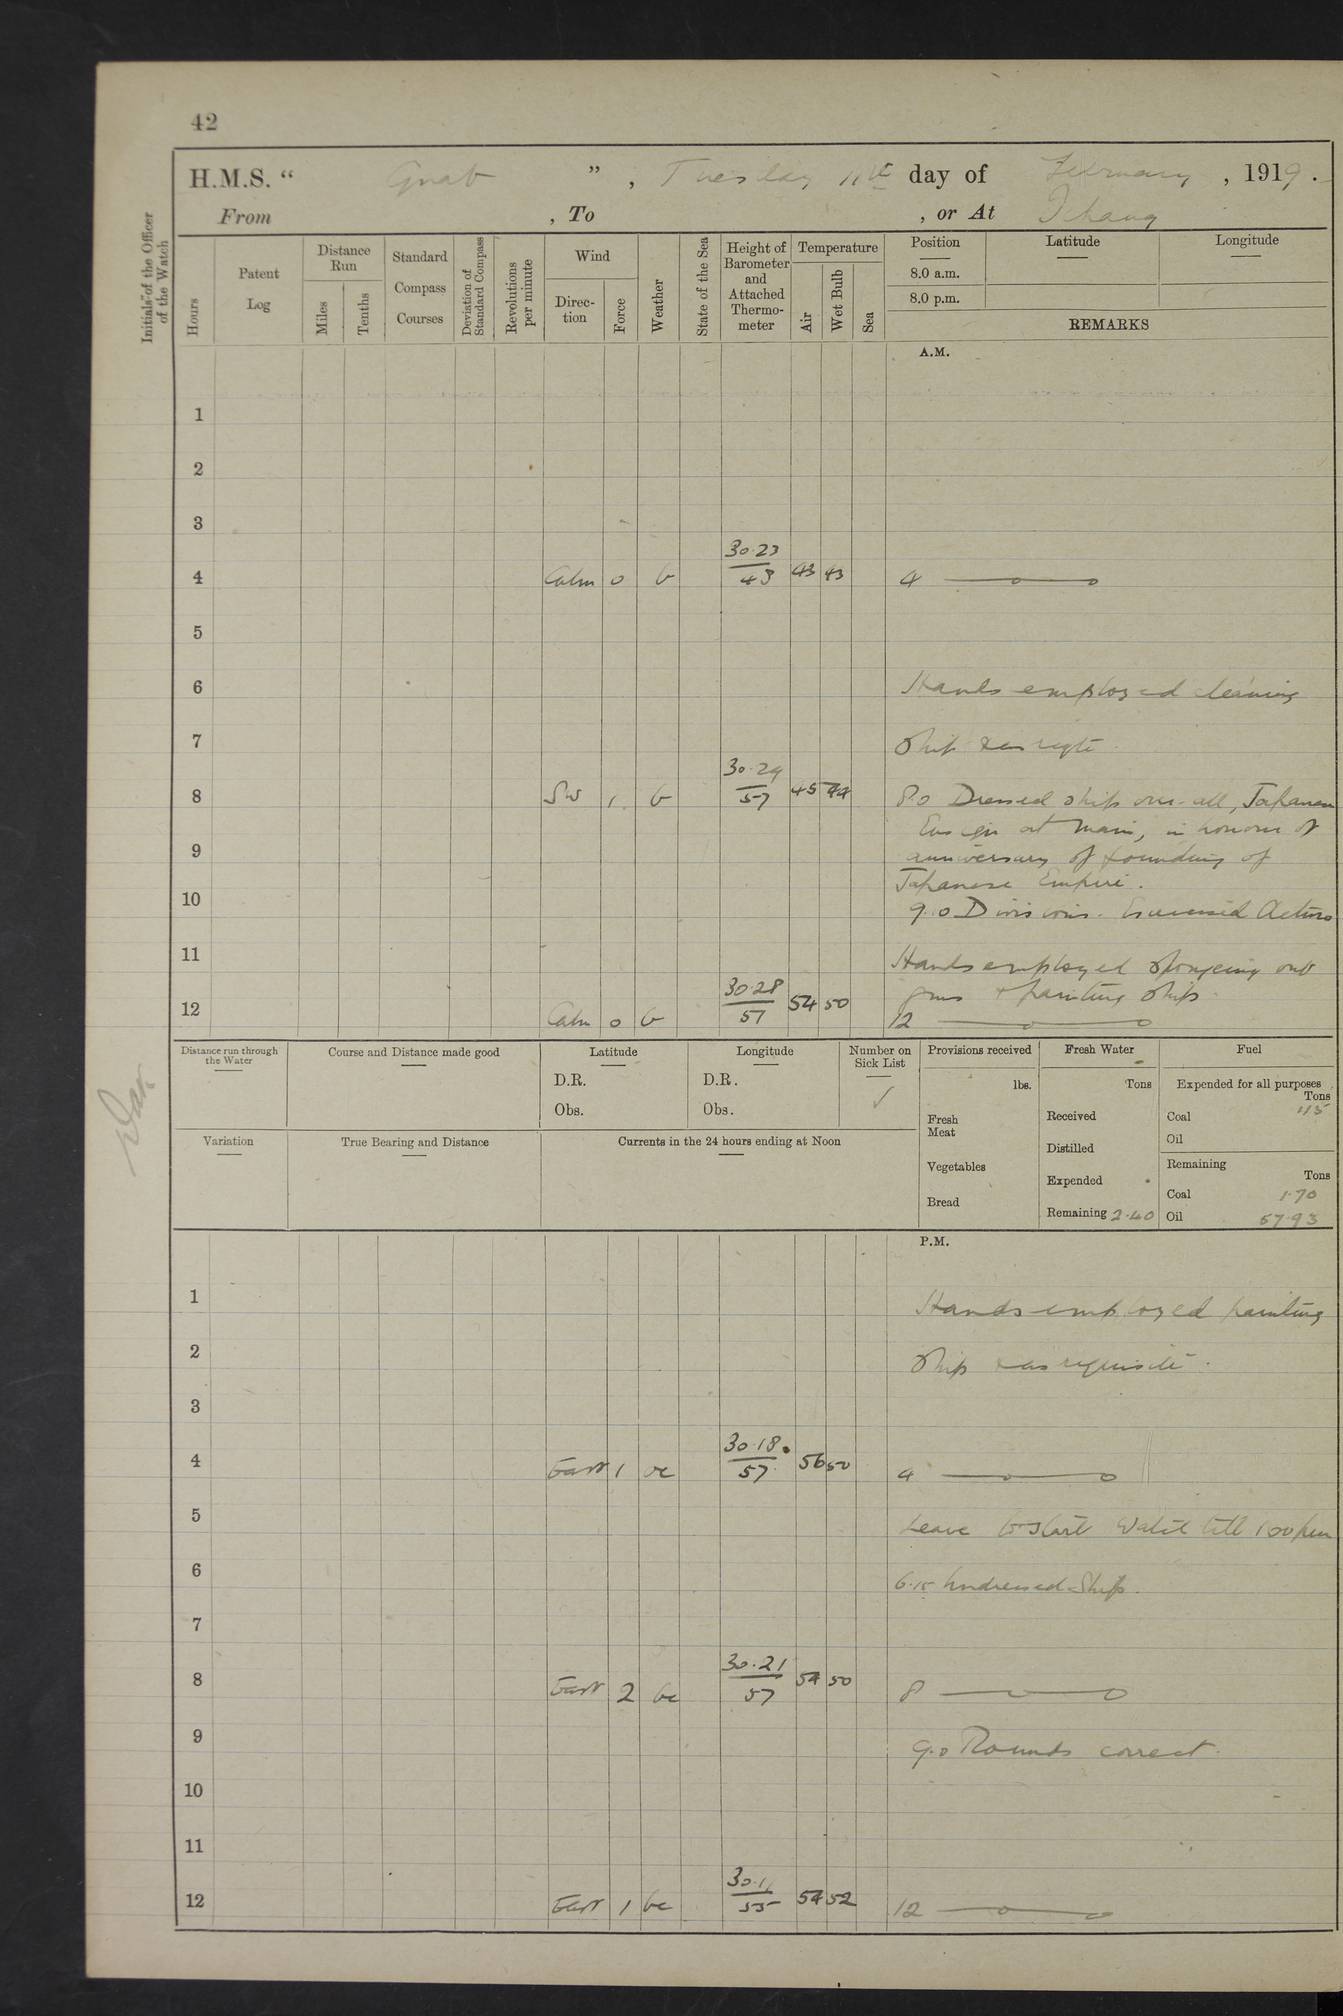 42
H.M.S. " Gnat ", Tuesday 11th day of February, 1919.
From , To , or At Ichang
Initials of the Officer of the Watch
Hours
Patent Log
Distance Run
Miles
Tenths
Standard Compass Courses
Deviation of Standard Compass
Revolutions per minute
Wind
Direction
Force
Weather
State of the Sea
Height of Barometer and Attached Thermometer
Temperature
Air
Wet Bulb
Sea
Position Latitude Longitude
8.0 a.m.
8.0 p.m.
REMARKS
A.M.
1
2
3
4 Calm 0 b 30.23 43 43 43 4
5
6 Hands employed cleaning
7 Ship & as reqte
8 SW 1 b 30.24 57 45 44 8.0 Dressed ship over-all, Japanese
Ensign at main, in honour of
9 anniversary of founding of
Japanese Empire.
10 9.0 Divisions. Exercised Action
11 Hands employed sponging out
guns & painting ship.
12 Calm 0 b 30.28 57 54 50 12
Distance run through the Water
Course and Distance made good
Latitude
D.R.
Obs.
Longitude
D.R.
Obs.
Number on Sick List
✓
Variation
True Bearing and Distance
Currents in the 24 hours ending at Noon
Provisions received
lbs.
Fresh Meat
Vegetables
Bread
Fresh Water
Tons
Received
Distilled
Expended
Remaining 2.40
Fuel
Expended for all purposes
Tons
Coal
Oil
Remaining
Tons
Coal 1.70
Oil 57.93
P.M.
1 Hands employed painting
2 Ship & as requisite.
3
4 East 1 bc 30.18 57 56 50 4
5 Leave to start Watch till 100 pm
6 6.15 Undressed Ship.
7
8 East 2 bc 30.21 57 54 50 8
9 9.0 Rounds correct.
10
11
12 East 1 bc 30.11 55 54 52 12